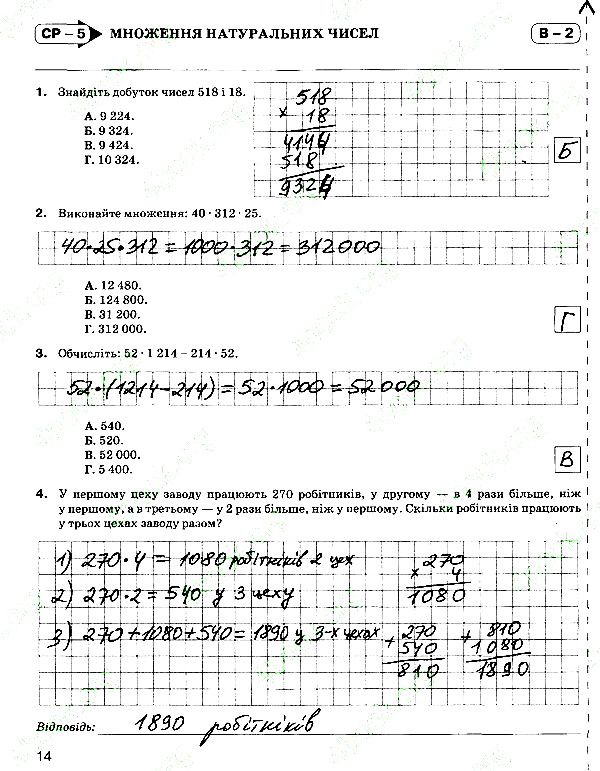 СР – 5 МНОЖЕННЯ НАТУРАЛЬНИХ ЧИСЕЛ В – 2
1. Знайдіть добуток чисел 518 і 18.
А. 9 224.
Б. 9 324.
В. 9 424.
Г. 10 324.
518
× 18
4144
518
9324
Б
2. Виконайте множення: 40 · 312 · 25.
40·25·312 = 1000·312 = 312000
А. 12 480.
Б. 124 800.
В. 31 200.
Г. 312 000.
Г
3. Обчисліть: 52 · 1 214 – 214 · 52.
52·(1214–214) = 52·1000 = 52000
А. 540.
Б. 520.
В. 52 000.
Г. 5 400.
В
4. У першому цеху заводу працюють 270 робітників, у другому — в 4 рази більше, ніж
у першому, а в третьому — у 2 рази більше, ніж у першому. Скільки робітників працюють
у трьох цехах заводу разом?
1) 270·4 = 1080 робітників 2 цех
270
× 4
1080
2) 270·2 = 540 у 3 цеху
3) 270+1080+540 = 1890 у 3-х цехах
+ 270
540
810
+ 810
1080
1890
Відповідь: 1890 робітників
14